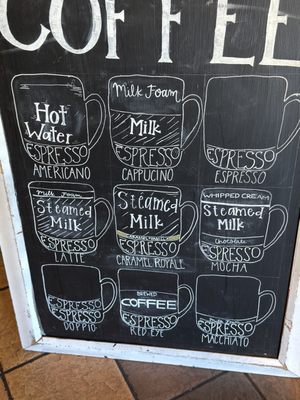 COFFEE
Hot
Water
ESPRESSO
AMERICANO
Milk Foam
Milk
ESPRESSO
CAPPUCINO
ESPRESSO
ESPRESSO
Milk Foam
Steamed
Milk
ESPRESSO
LATTE
Steamed
Milk
ESPRESSO
CARAMEL ROYALE
WHIPPED CREAM
Steamed
Milk
Chocolate
ESPRESSO
MOCHA
ESPRESSO
ESPRESSO
DOPPIO
BREWED
COFFEE
ESPRESSO
RED EYE
ESPRESSO
MACCHIATO